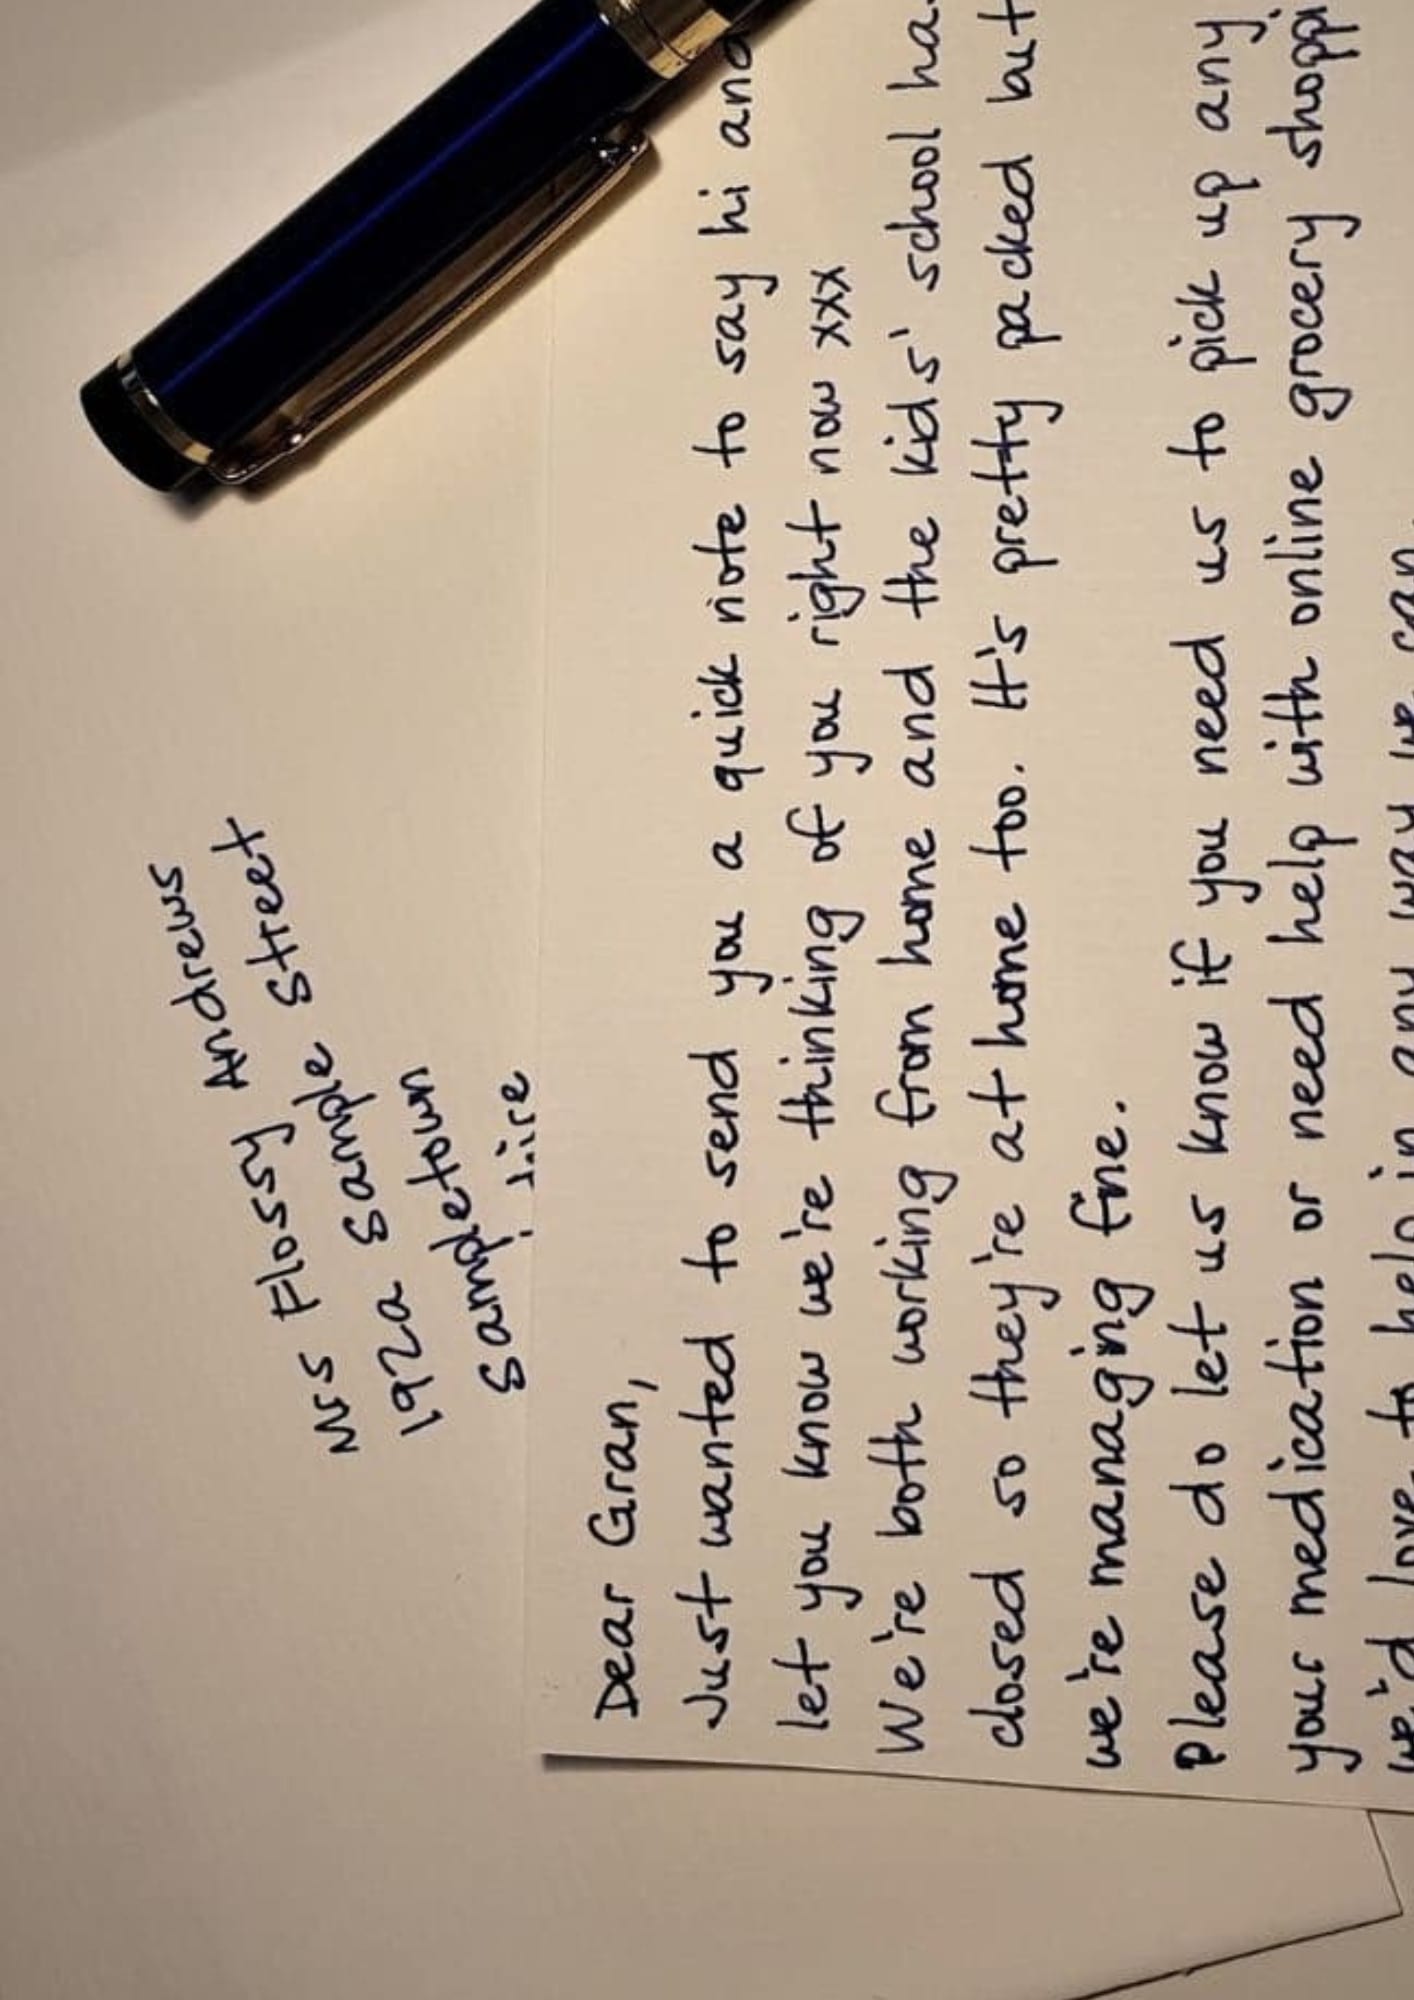 Mrs Flossy Andrews
192a Sample Street
Sampletown
Dear Gran,
Just wanted to send you a quick note to say hi and
let you know we're thinking of you right now xxx
We're both working from home and the kids' school ha
closed so they're at home too. It's pretty packed but
we're managing fine.
Please do let us know if you need us to pick up any
your medication or need help with online grocery shoppi
we'd love to help in any way we can